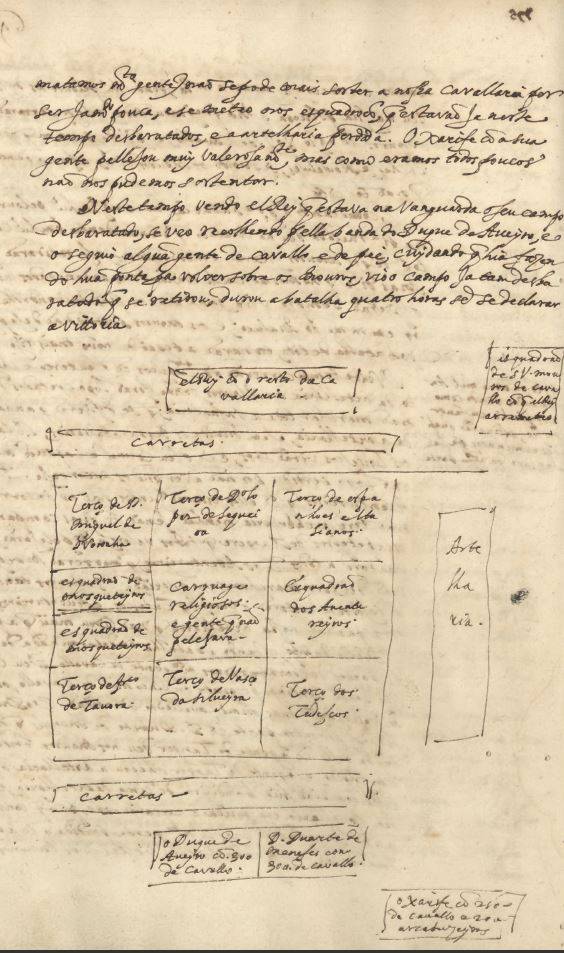 matamos m.ta gente) não se pode mais soster a nossa cavallaria por
ser ja mui pouca, e se meteo nos esquadrões, q̃ estavão ja neste
tempo desbaratados, e a artelharia perdida. O Xarife cõ a sua
gente pellejou muy valerosam.te, mas como eramos tão poucos
não nos pudemos sostentar.
Neste tempo vendo el Rey q̃ estava na vanguarda o seu campo
desbaratado, se veo recolhendo pella banda do Duque de Aveyro, e
o seguio alguã gente de cavallo e de pee, cuydando q̃ hia fazen
do huã ponta pa volver sobre os Mouros, vio o campo ja tam desba
ratado q̃ se retirou, durou a batalha quatro horas sẽ se declarar
a vittoria
el Rey cõ o resto da ca
vallaria
esquadrão
de
mou
ros de cava
lo
carretas
Terço de D.
Miguel de
Noronha
Terço de Dº lo
pez de Sequei
ra
Terço de espa
nhoes e Ita
lianos.
Arte
lha
ria.
esquadrão de
mosqueteyros
esquadrão de
mosqueteyros
Carruage
religiosos.
e gente q̃ não
pelejava
Esquadrão
dos Avente
reyros.
Terço de
de Tavora.
Terço de Vasco
da Silveyra
Terço dos
Tudescos.
carretas
O Duque de
Aveyro cõ 300
de Cavallo.
D. Duarte de
Meneses con
300. de cavallo.
O Xarife cõ 250
de cavallo e 200
arcabuzeyros